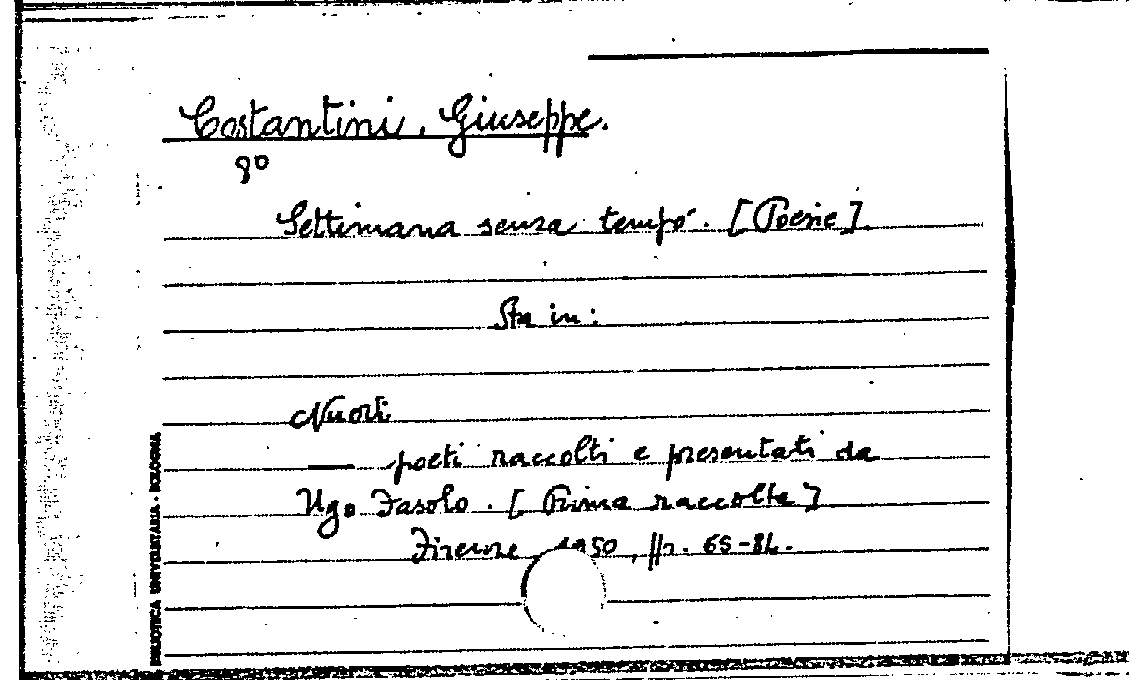 Costantini, Giuseppe.
8º
Settimana senza tempo. [Poesie].
Sta in:
Nuovi
— poeti raccolti e presentati da
Ugo Fasolo. [Prima raccolta]
Firenze, 1950, pp.
BIBLIOTECA UNIVERSITARIA - BOLOGNA